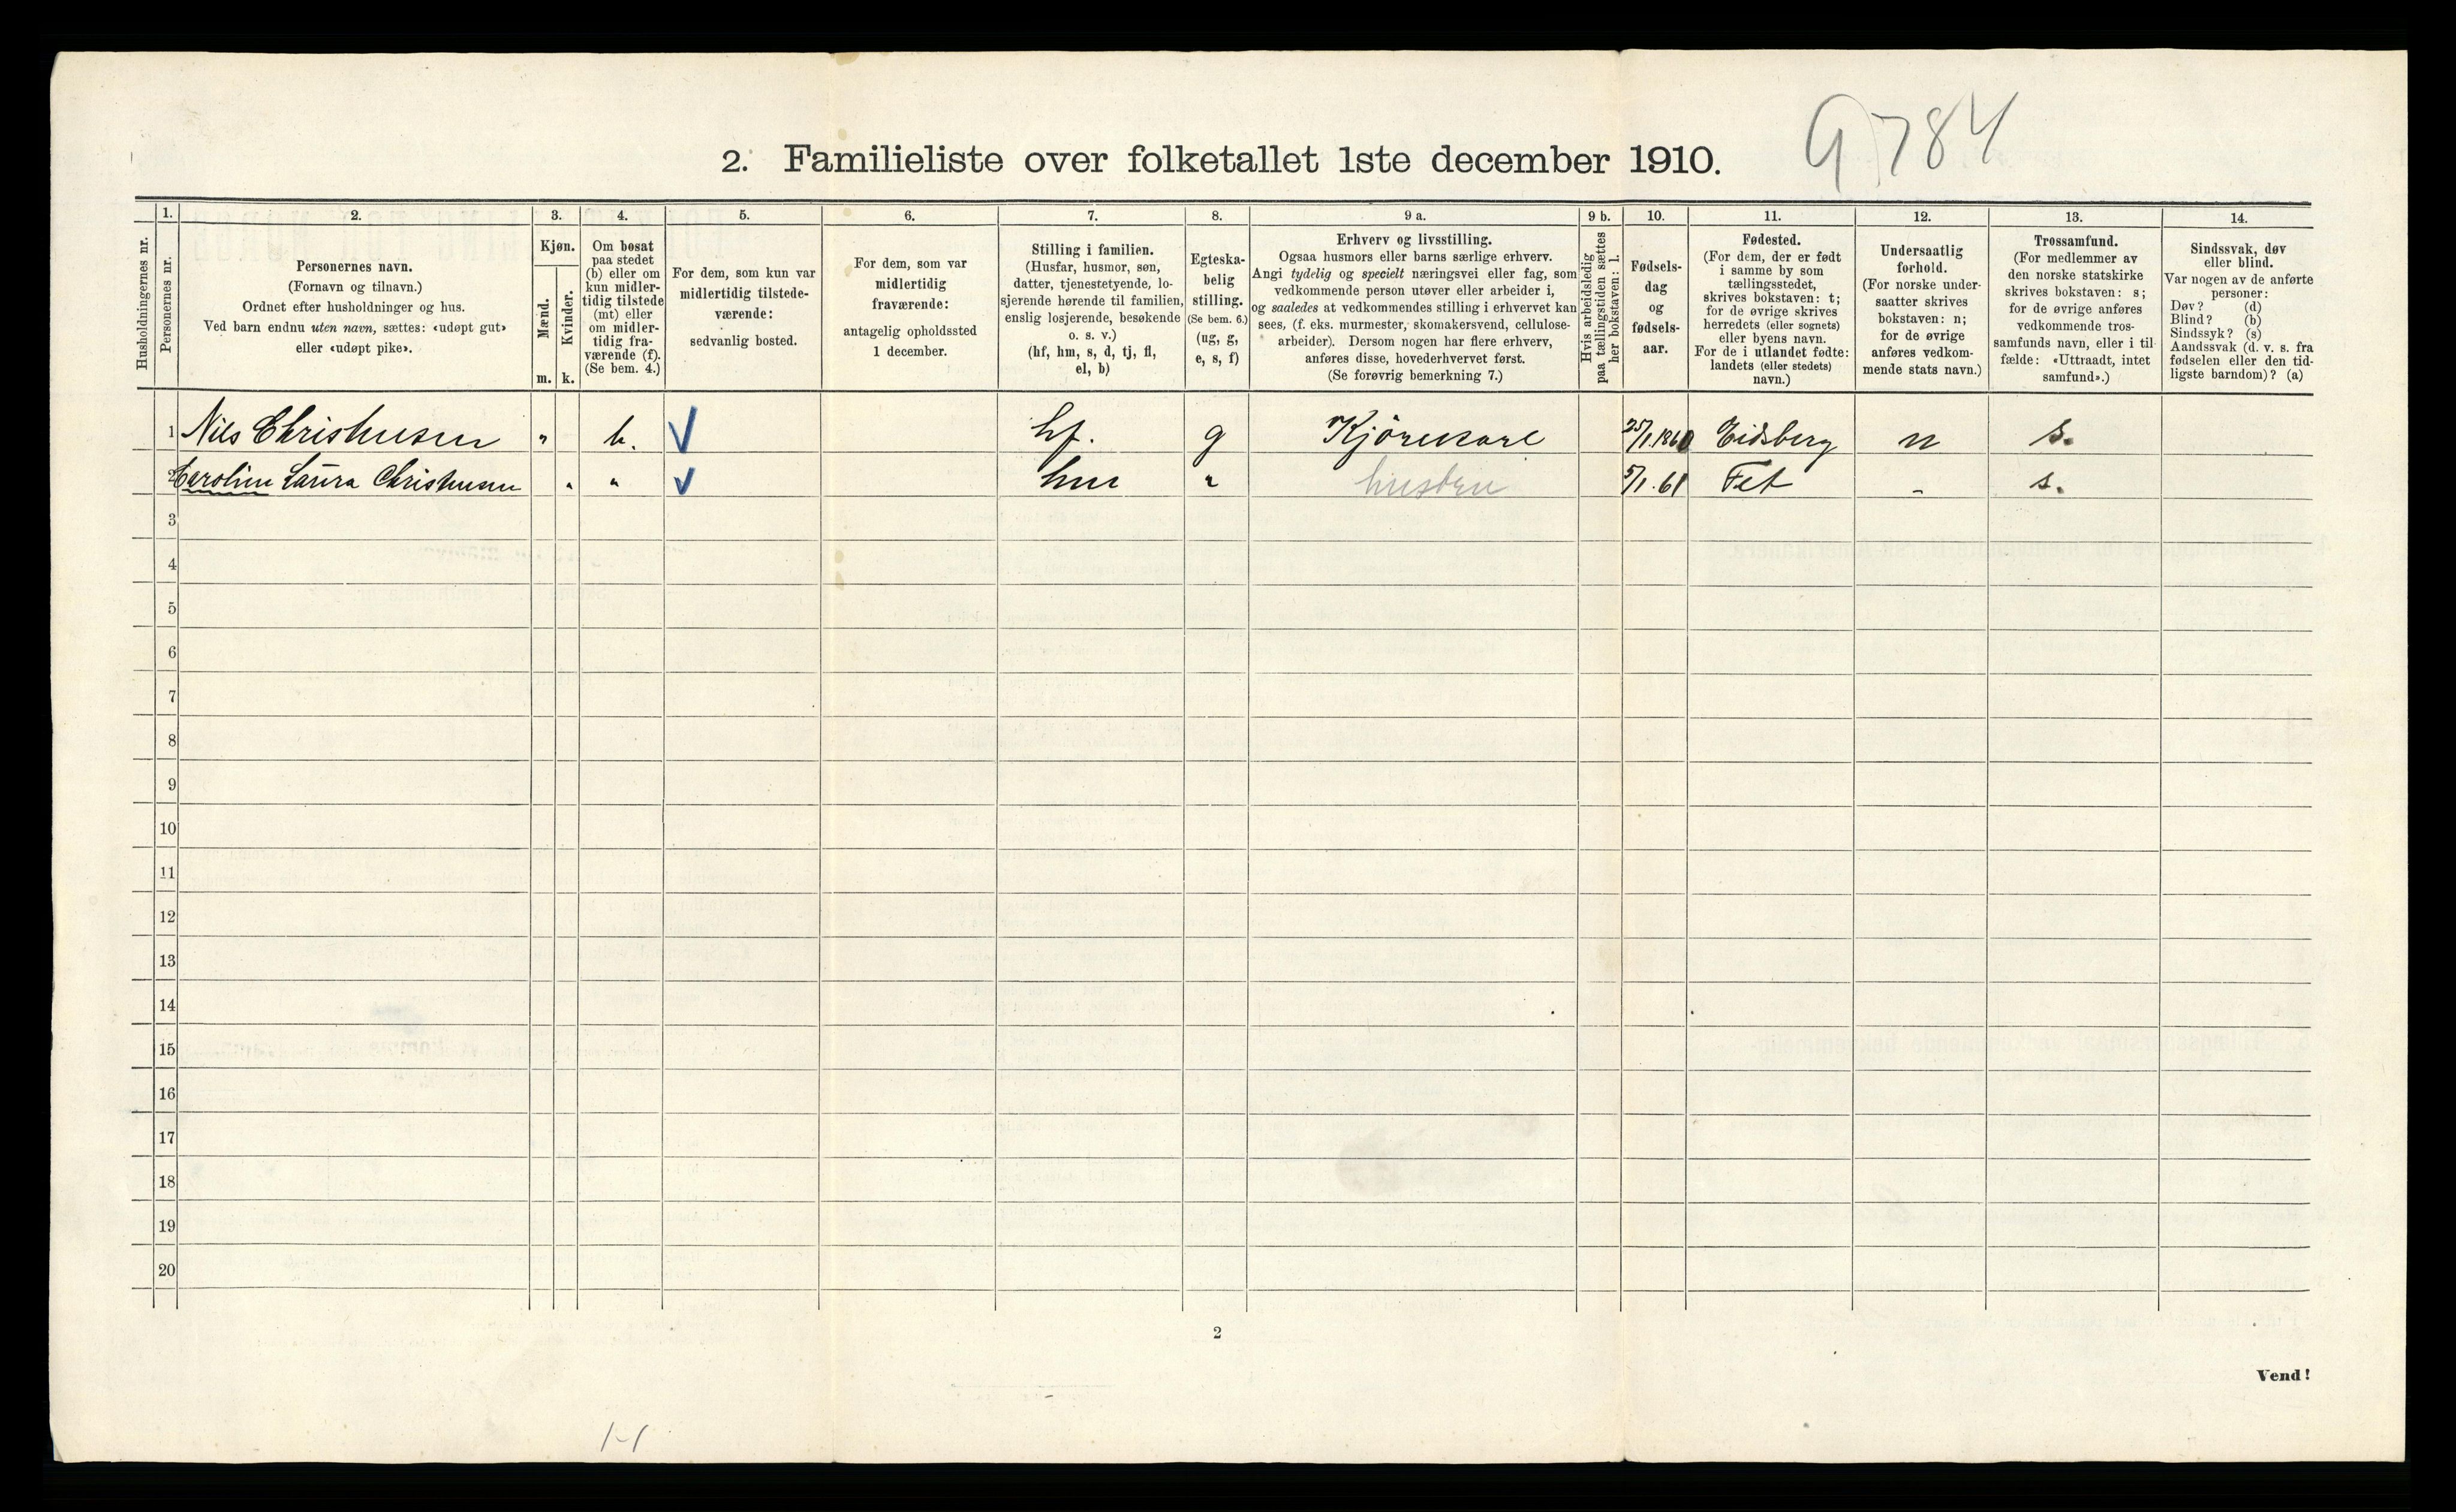 9784
2. Familieliste over folketallet 1ste december 1910.
Husholdningernes nr.
1.
Personernes nr.
2.
Personernes navn.
(Fornavn og tilnavn.)
Ordnet efter husholdninger og hus.
Ved barn endnu uten navn, sættes: «udøpt gut»
eller «udøpt pike».
3.
Kjøn.
Mænd.
m.
Kvinder.
k.
4.
Om bosat
paa stedet
(b) eller om
kun midler-
tidig tilstede
(mt) eller
om midler-
tidig fra-
værende (f).
(Se bem. 4.)
5.
For dem, som kun var
midlertidig tilstede-
værende:
sedvanlig bosted.
6.
For dem, som var
midlertidig
fraværende:
antagelig opholdssted
1 december.
7.
Stilling i familien.
(Husfar, husmor, søn,
datter, tjenestetyende, lo-
sjerende hørende til familien,
enslig losjerende, besøkende
o. s. v.)
(hf, hm, s, d, tj, fl,
el, b)
8.
Egteska-
belig
stilling.
(Se bem. 6.)
(ug, g,
e, s, f)
9 a.
Erhverv og livsstilling.
Ogsaa husmors eller barns særlige erhverv.
Angi tydelig og specielt næringsvei eller fag, som
vedkommende person utøver eller arbeider i,
og saaledes at vedkommendes stilling i erhvervet kan
sees, (f. eks. murmester, skomakersvend, cellulose-
arbeider). Dersom nogen har flere erhverv,
anføres disse, hovederhvervet først.
(Se forøvrig bemerkning 7.)
9 b.
Hvis arbeidsledig
paa tællingstiden sættes
her bokstaven: l.
10.
Fødsels-
dag
og
fødsels-
aar.
11.
Fødested.
(For dem, der er født
i samme by som
tællingsstedet,
skrives bokstaven: t;
for de øvrige skrives
herredets (eller sognets)
eller byens navn.
For de i utlandet fødte:
landets (eller stedets)
navn.)
12.
Undersaatlig
forhold.
(For norske under-
saatter skrives
bokstaven: n;
for de øvrige
anføres vedkom-
mende stats navn.)
13.
Trossamfund.
(For medlemmer av
den norske statskirke
skrives bokstaven: s;
for de øvrige anføres
vedkommende tros-
samfunds navn, eller i til-
fælde: «Uttraadt, intet
samfund».)
14.
Sindssvak, døv
eller blind.
Var nogen av de anførte
personer:
Døv? (d)
Blind? (b)
Sindssyk? (s)
Aandssvak (d. v. s. fra
fødselen eller den tid-
ligste barndom)? (a)
1 Nils Christensen " b. hf. g Kjörekarl 25/1.1860 Eidsberg n s.
2 Caroline Laura Christensen " " hm " husstell 5/1.61 Fet - s.
3
4
5
6
7
8
9
10
11
12
13
14
15
16
17
18
19
20
2
Vend!
1-1